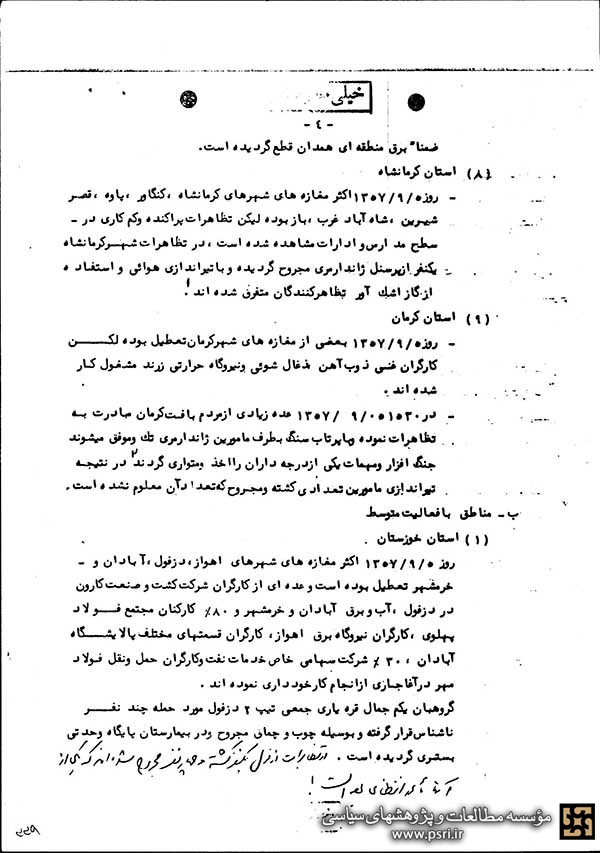 خیلی
- ٤ -
ضمناً برق منطقه ای همدان قطع گردیده است.
(٨) استان کرمانشاه
- روز ١٣٥٧/٩/٥ اکثر مغازه های شهرهای کرمانشاه ، کنگاور ، پاوه ، قصر
شیرین ، شاه آباد غرب ، باز بوده لیکن تظاهرات پراکنده وکم کاری در -
سطح مدارس و ادارات مشاهده شده است ، در تظاهرات شهر کرمانشاه
یکنفر ازپرسنل ژاندارمری مجروح گردیده و با تیراندازی هوائی و استفاده
از گاز اشك آور تظاهرکنندگان متفرق شده اند !
(٩) استان کرمان
- روز ١٣٥٧/٩/٥ بعضی از مغازه های شهرکرمان تعطیل بوده لکن
کارگران فنی ذوب آهن ذغال شوئی ونیروگاه حرارتی زرند مشغول کار
شده اند .
- در ٠٥١٥٣٠ /٩ /١٣٥٧ عده زیادی ازمردم بافت کرمان مبادرت به
تظاهرات نموده وباپرتاب سنگ بطرف مامورین ژاندارمری تك وموفق میشوند
جنگ افزار ومهمات یکی ازدرجه داران را اخذ ومتواری گردند در نتیجه
تیراندازی مامورین تعدادی کشته ومجروح که تعداد آن معلوم نشده است.
ب - مناطق با فعالیت متوسط
(١) استان خوزستان
روز ١٣٥٧/٩/٥ اکثر مغازه های شهرهای اهواز، دزفول ، آبادان و -
خرمشهر تعطیل بوده است و عده ای از کارگران شرکت کشت و صنعت کارون
در دزفول ، آب و برق آبادان و خرمشهر و ٨٠٪ کارکنان مجتمع فولاد
پهلوی ، کارگران نیروگاه برق اهواز، کارگران قسمتهای مختلف پالایشگاه
آبادان ، ٣٠ ٪ شرکت سهامی خاص خدمات نفت وکارگران حمل ونقل فولاد
مهر در آغاجاری ازانجام کارخودداری نموده اند .
گروهبان یکم جمال قره یاری جمعی تیپ ٢ دزفول مورد حمله چند نفر
ناشناس قرار گرفته و بوسیله چوب و چماق مجروح ودر بیمارستان پایگاه وحدتی
بستری گردیده است . در تظاهرات دزفول یکنفر کشته و سه نفر مجروح شده اند که یکی از
آنها
مؤسسه مطالعات و پژوهشهای سیاسی
www.psri.ir